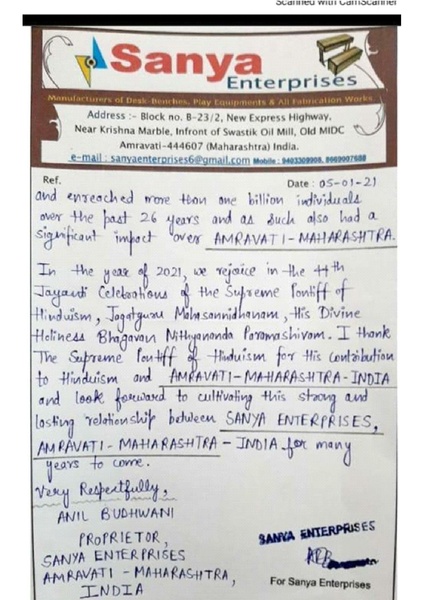 Scanned with CamScanner
Sanya
Enterprises
Manufacturers of Desk-Benches, Play Equipments & All Fabrication Works
Address :- Block no. B-23/2, New Express Highway,
Near Krishna Marble, Infront of Swastik Oil Mill, Old MIDC
Amravati-444607 (Maharashtra) India.
e-mail : sanyaenterprises6@gmail.com Mobile :
Ref. Date : 05-01-21
and enreached more than one billion individuals
over the past 26 years and as such also had a
significant impact over AMRAVATI-MAHARASHTRA.
In the year of 2021, we rejoice in the 44th
Jayanti Celebrations of the Supreme Pontiff of
Hinduism, Jagatguru Mahasannidhanam, His Divine
Holiness Bhagavan Nithyananda Paramashivam. I thank
The Supreme Pontiff of Hinduism for His contribution
to Hinduism and AMRAVATI-MAHARASHTRA-INDIA
and look forward to cultivating this strong and
lasting relationship between SANYA ENTERPRISES,
AMRAVATI-MAHARASHTRA-INDIA for many
years to come.
Very Respectfully,
ANIL BUDHWANI
PROPRIETOR,
SANYA ENTERPRISES
AMRAVATI-MAHARASHTRA,
INDIA
SANYA ENTERPRISES
For Sanya Enterprises